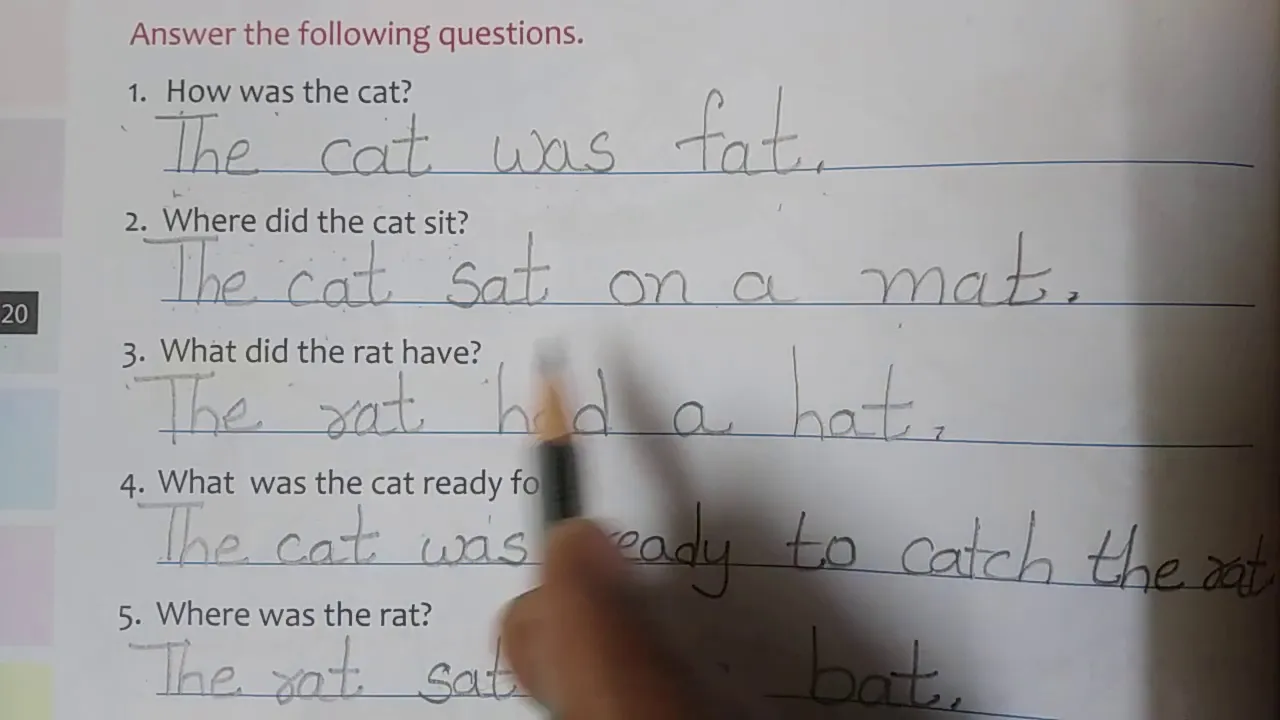 Answer the following questions.
1. How was the cat?
The cat was fat.
2. Where did the cat sit?
The cat sat on a mat.
20
3. What did the rat have?
The rat had a hat.
4. What was the cat ready fo
The cat was ready to catch the rat
5. Where was the rat?
The rat sat bat.